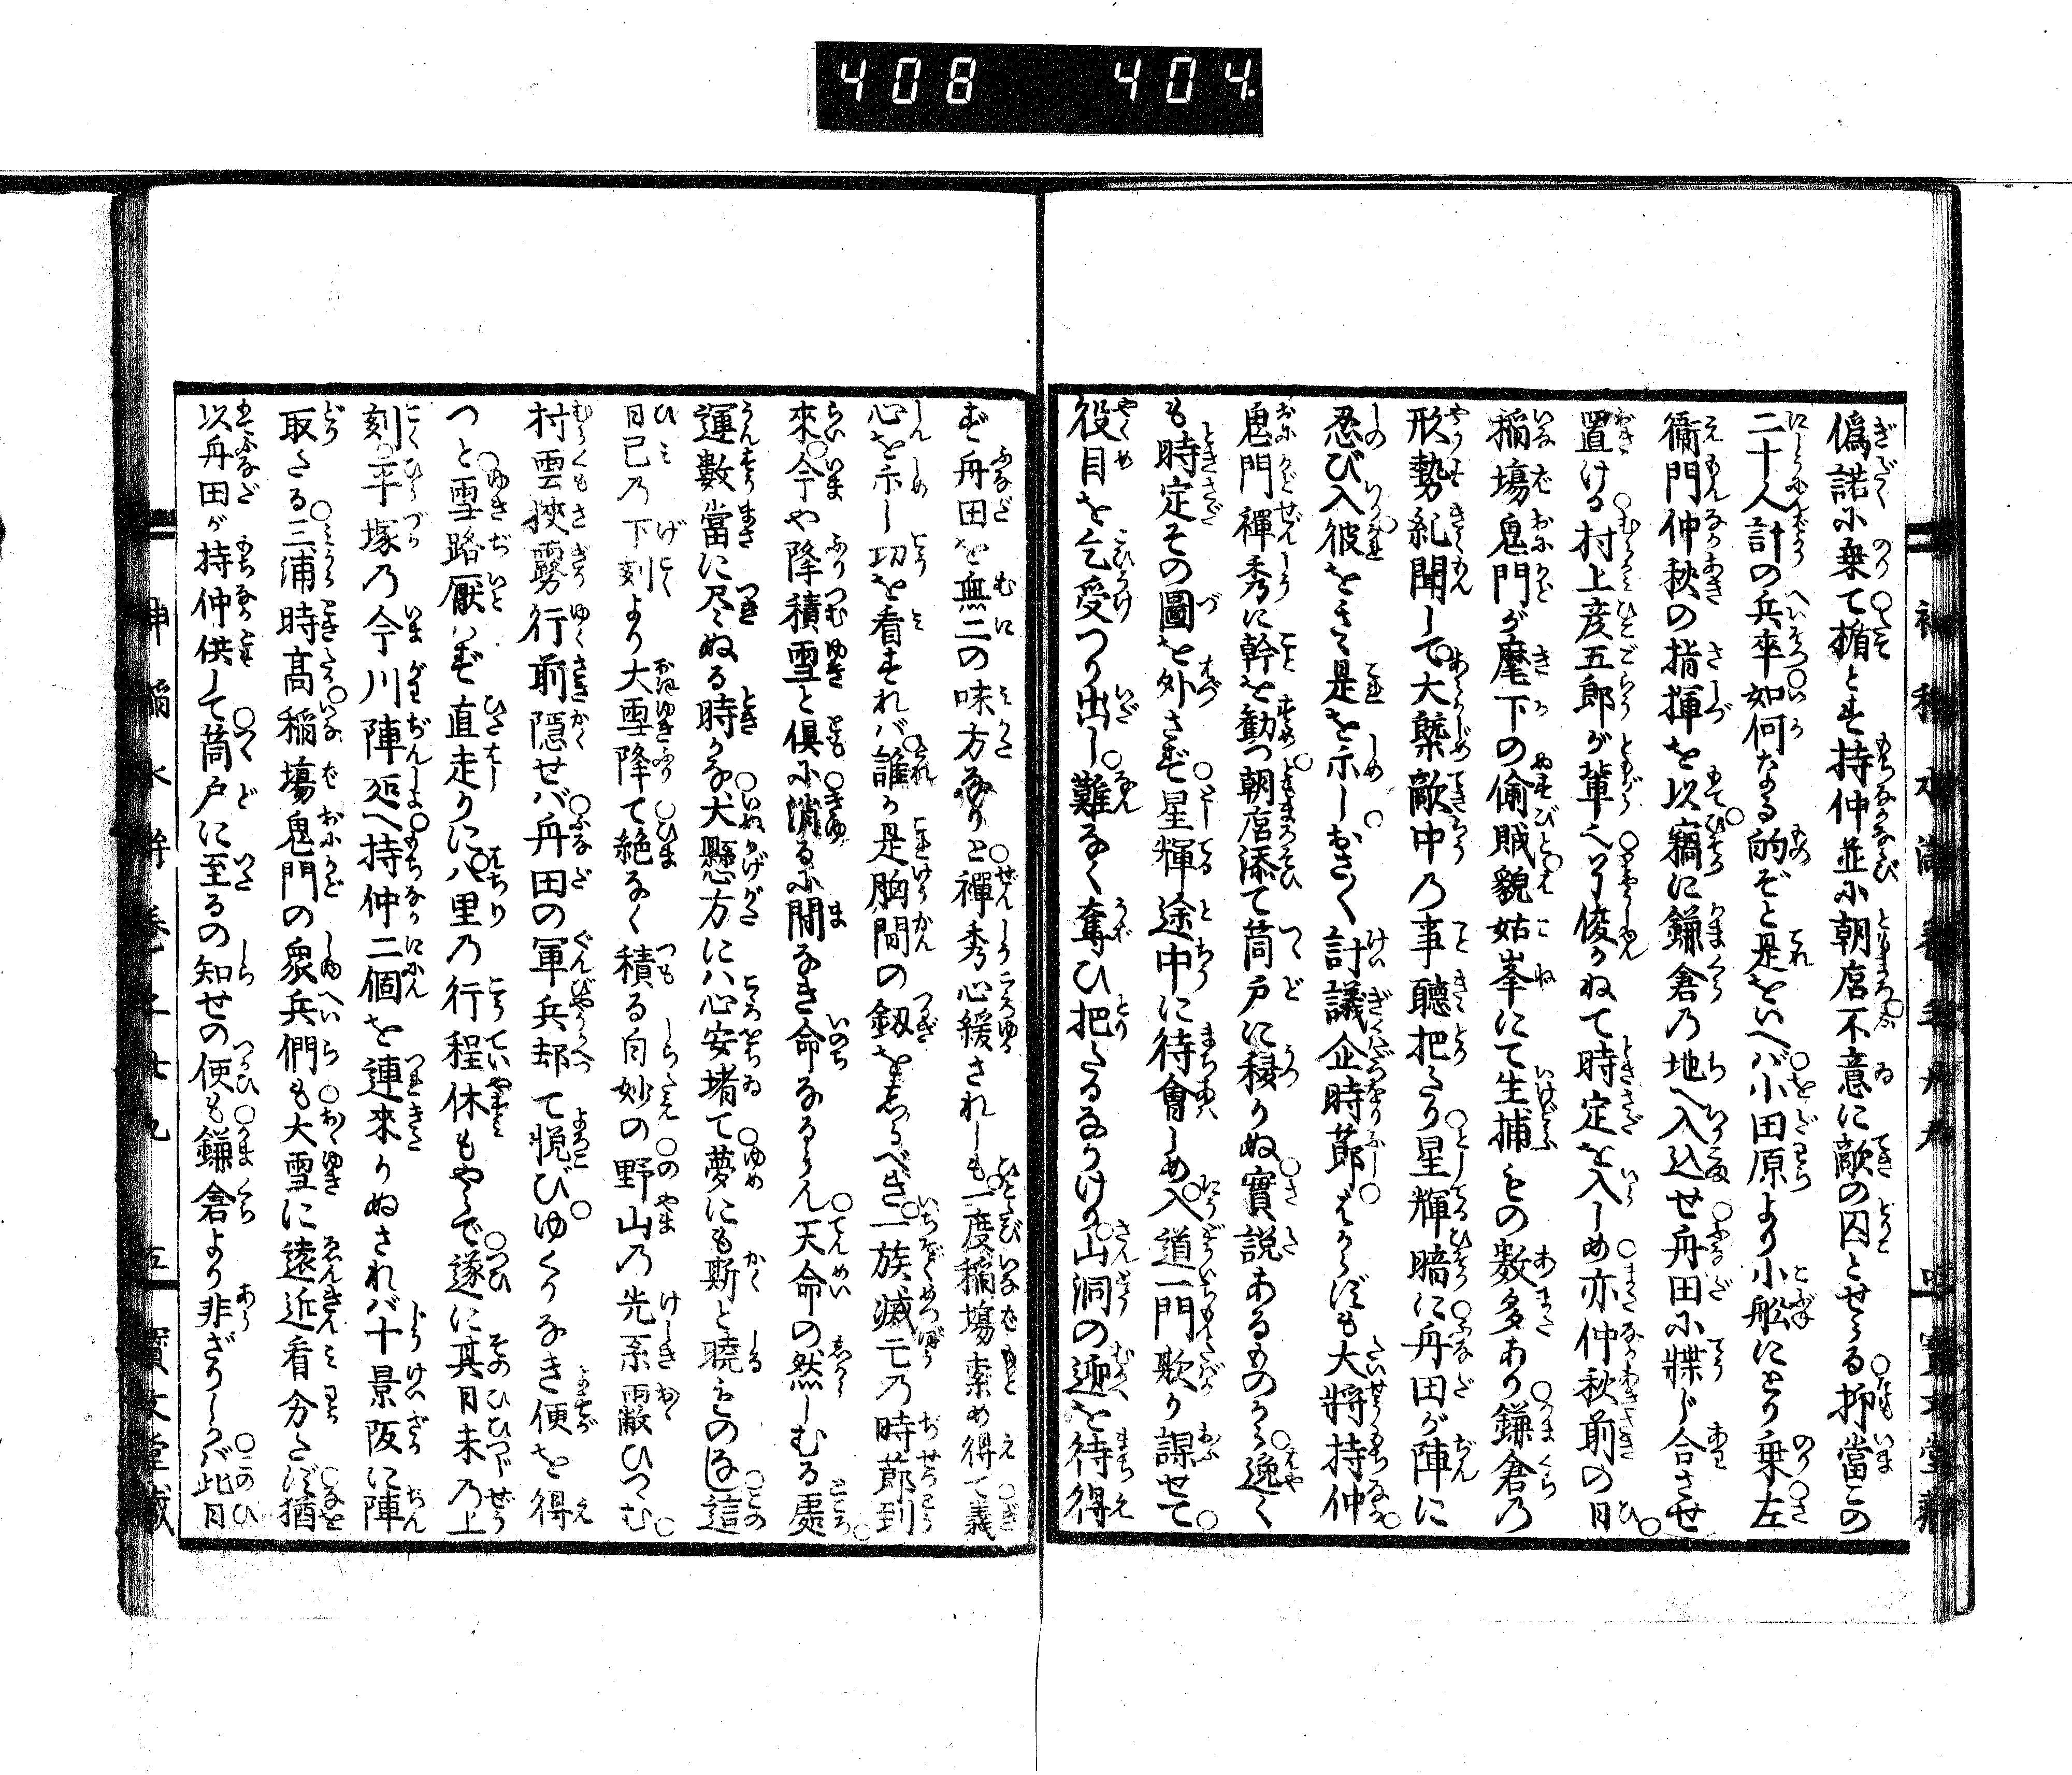 408 404
偽諾に乗て楯とす持仲並に朝宿不意に敵の囚とせらる抑當この
二十人計の兵卒如何なる的ぞと是をいへバ小田原より小舩にとり乗左
衞門仲秋の指揮を以竊に鎌倉乃地へ入込せ舟田に牒じ合させ
置ける村上彦五郎が輩也俊かねて時定を入しめ亦仲秋前の日
稲塲鬼門が麾下の偷賊貌姑峯にて生捕もの数多あり鎌倉乃
形勢糺聞して大槩敵中乃事聽把たり星輝暗に舟田が陣に
忍び入彼をきゝ是を示しおさ〳〵討議企時莭よからずも大將持仲
鬼門禪秀に幹を勸つ朝宿添て筒戸に移りぬ實説あるものから逸く
も時定その圖を外さず星輝途中に待會しめ入道一門欺り謀せて
役目を乞受つり出し難なく奪ひ把たるなりけり山洞の迎を待得
ず舟田を無二の味方なりと禪秀心緩されしも一度稲塲索め得て義
心を示し切を看すれバ誰か是胸間の釼を志るべき一族滅亡乃時莭到
來今や降積雪と俱に消るに間なき命なるらん天命の然しむる処
運數當に尽ぬる時かな犬懸方にハ心安堵て夢にも斯と曉ものな這
日巳乃下刻より大雪降て絶なく積る白妙の野山乃先系霏霺ひつむ
村雲挾霧行前隠せバ舟田の軍兵却て悦びゆくりなき便を得
つと雪路厭ハず直走りに八里乃行程休もやらで遂に其日未乃上
刻平塚乃今川陣近へ持仲二個を連來りぬされバ十景阪に陣
取たる三浦時髙稲塲鬼門の衆兵們も大雪に遠近看分たず猶
以舟田が持仲供して筒戸に至るの知せの使も鎌倉より非ざりしバ此日